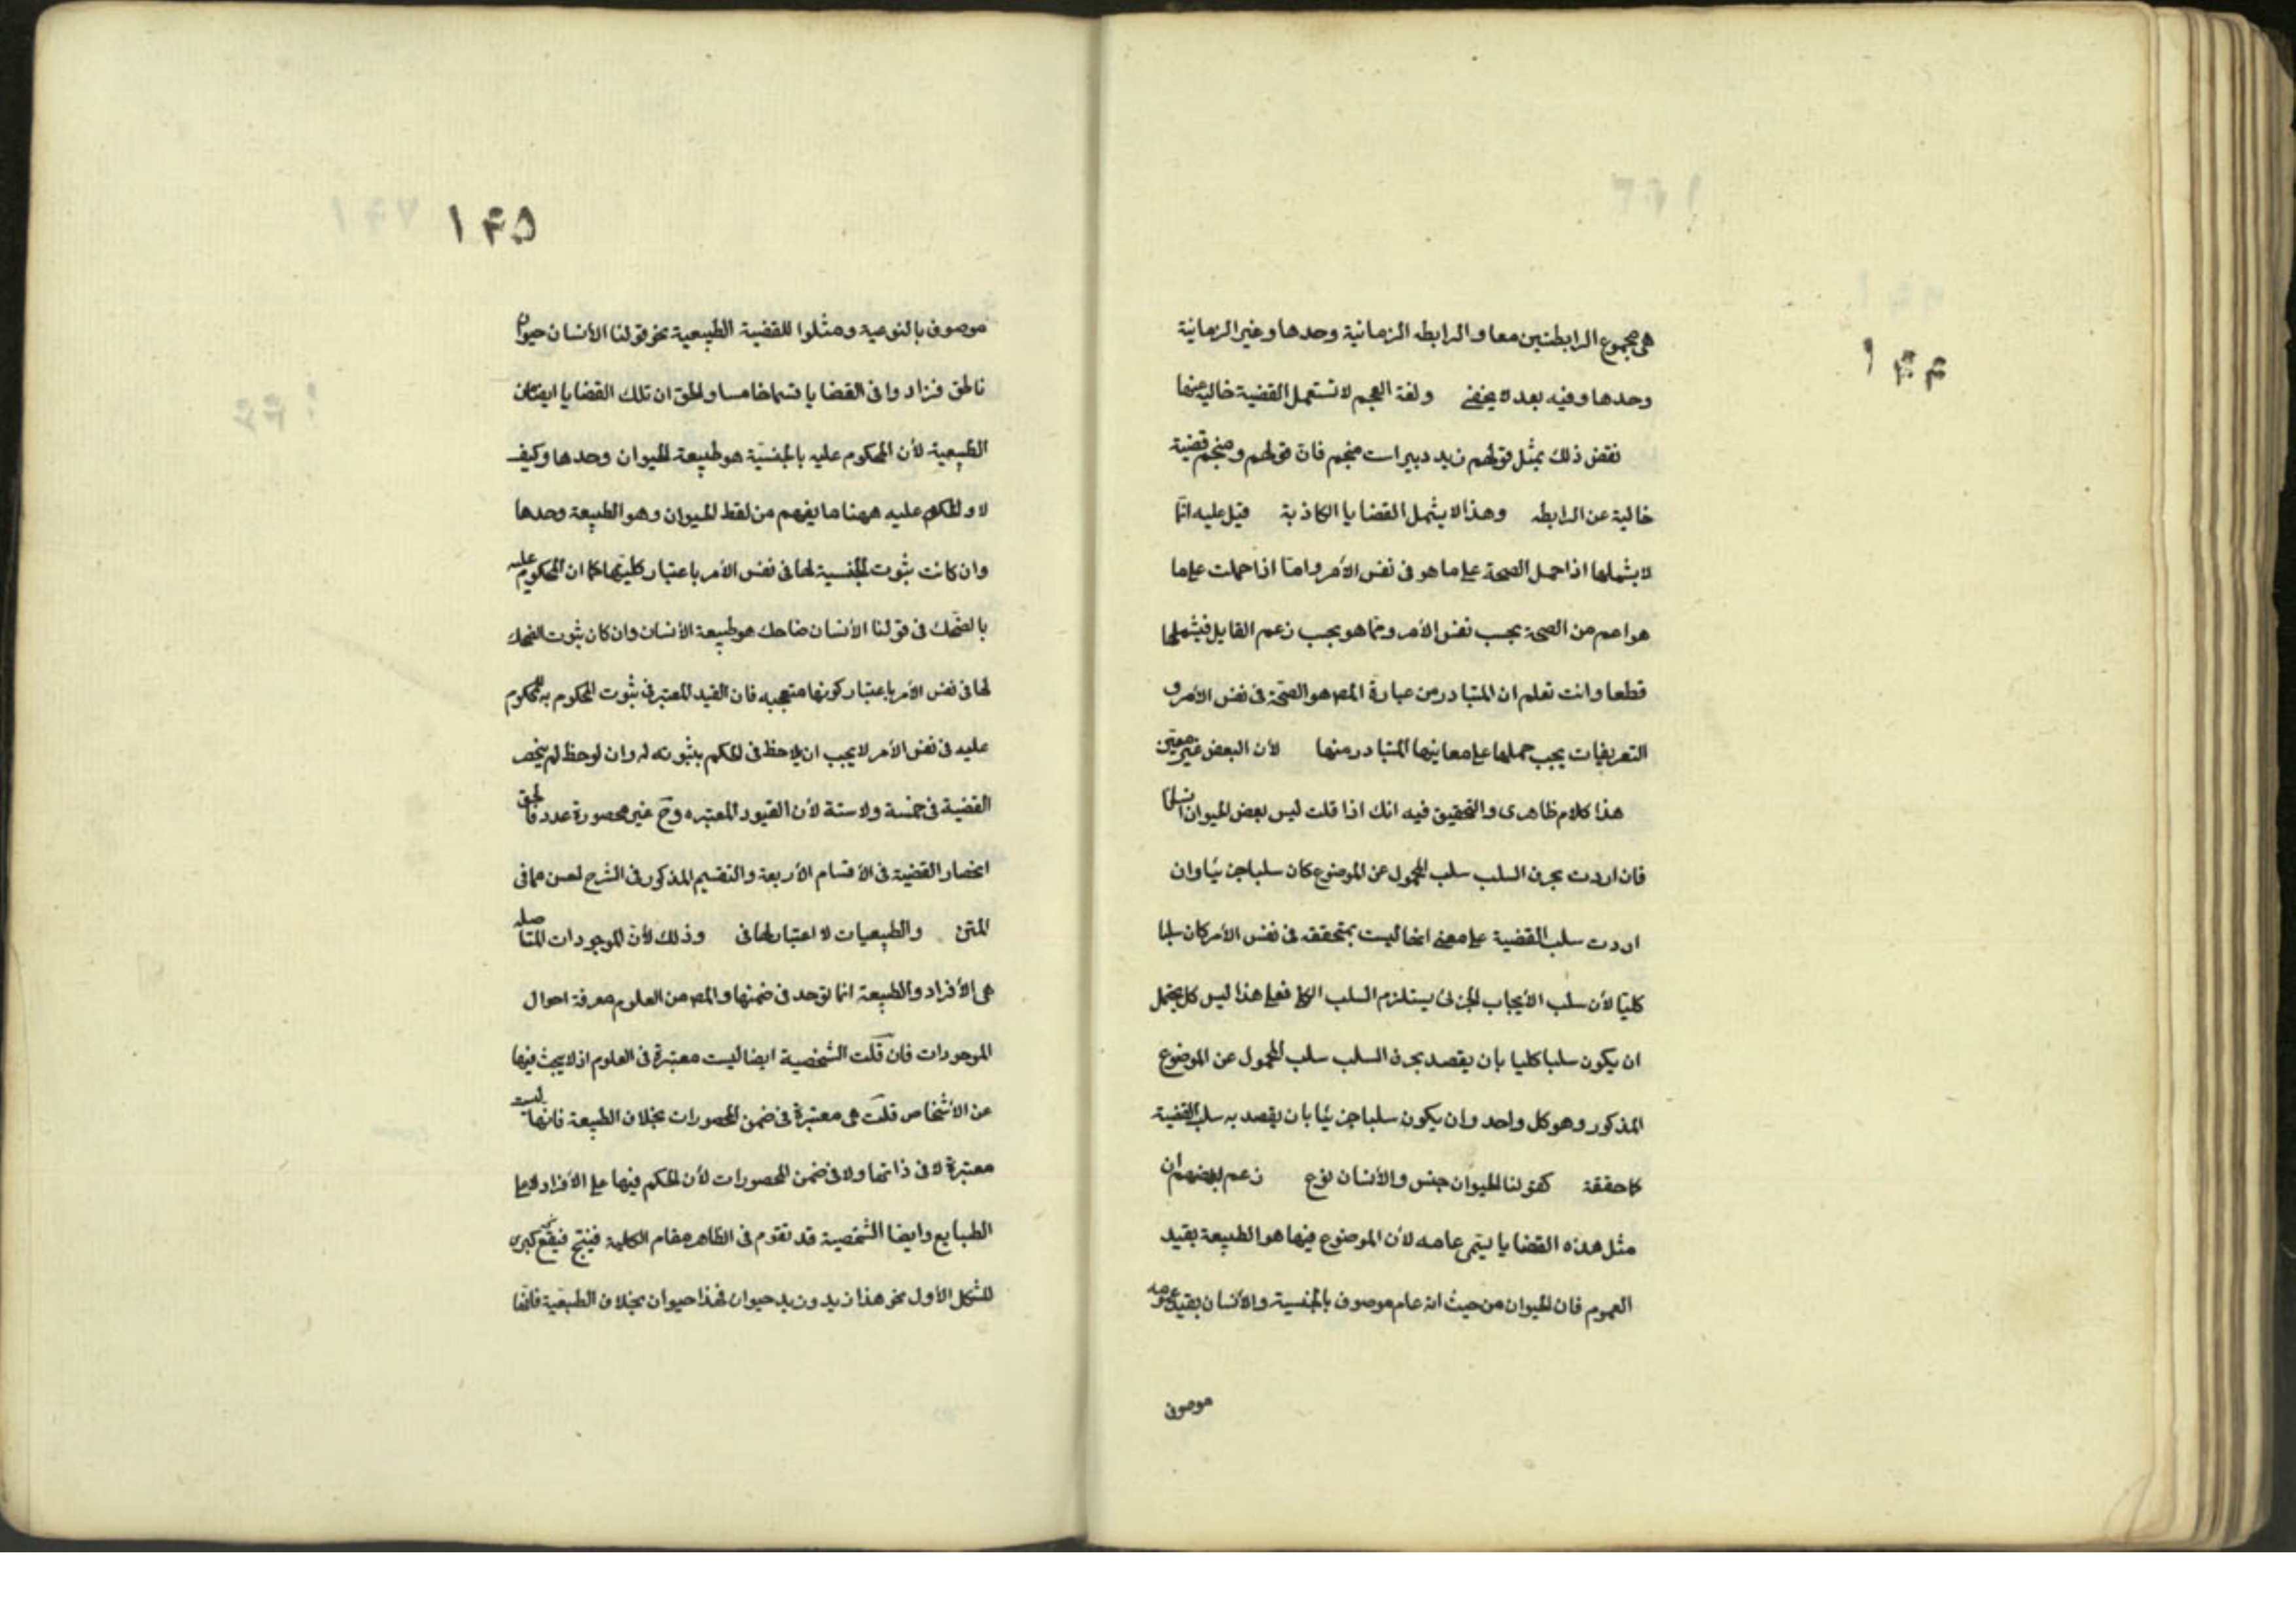 ١۴۴
هى مجموع الرابطتين معا والرابطه الزمانية وحدها وغير الزمانية
وحدها وفيه بعد لا يخفى ولغة العجم لا تستعمل القضية خالية عنها
نقض ذلك بمثل قولهم زيد دبيراست منجم فان قولهم ومنجم قضية
خالية عن الرابطه وهذا لا يشمل القضايا الكاذبة قيل عليه انما
لا يشملها اذا حمل الصحة على ما هو فى نفس الأمر واما اذا حملت على ما
هو اعم من الصحة بحسب نفس الأمر ومما هو بحسب زعم القايل فيشملها
قطعا وانت تعلم ان المتبادر من عبارة المصـ هو الصحة فى نفس الأمر و
التعريفات يجب حملها على معانيها المتبادر منها لأن البعض غير معين
هذا كلام ظاهرى والتحقيق فيه انك اذا قلت ليس بعض الحيوان انسانا
فان اردت بحرف السلب سلب المحمول عن الموضوع كان سلبا جزئيا وان
اردت سلب القضية على معنى انها ليست بمتحققه فى نفس الأمر كان سلبا
كليا لأن سلب الأيجاب الجزئى يستلزم السلب الكلى فعلى هذا ليس كل يحتمل
ان يكون سلبا كليا بان يقصد بحرف السلب سلب المحمول عن الموضوع
المذكور وهو كل واحد وان يكون سلبا جزئيا بان يقصد به سلب القضية
كما حققة كقولنا الحيوان جنس والأنسان نوع زعم بعضهم ان
مثل هذه القضايا يسمى عامه لأن الموضوع فيها هو الطبيعة بقيد
العموم فان الحيوان من حيث انه عام موصوف بالجنسية والأنسان بقيد عمومه
موصوف
١۴۵
موصوف بالنوعية ومثلوا للقضية الطبيعية نحو قولنا الأنسان حيوان
ناطق فزادوا فى القضايا قسما خامسا والحق ان تلك القضايا ايضا من
الطبيعية لأن المحكوم عليه بالجنسية هو طبيعة الحيوان وحدها وكيف
لا والمحكوم عليه ههنا ما يفهم من لفظ الحيوان وهو الطبيعة وحدها
وان كانت ثبوت الجنسية لها فى نفس الأمر باعتبار كليتها كما ان المحكوم عليه
بالضحك فى قولنا الأنسان ضاحك هو طبيعة الأنسان وان كان ثبوت الضحك
لها فى نفس الأمر باعتبار كونها متعجبه فان القيد المعتبر فى ثبوت المحكوم به للمحكوم
عليه فى نفس الأمر لا يجب ان يلاحظ فى الحكم بثبوته له وان لوحظ لم ينحصر
القضية فى خمسة ولا ستة لأن القيود المعتبره وح غير محصورة عدد فالحق
انحصار القضية فى الأقسام الأربعة والتقسيم المذكور فى الشرح احسن مما فى
المتن والطبيعيات لا اعتبار لها فى وذلك لأن الموجودات المتاصله
هى الأفراد والطبيعة انما توجد فى ضمنها والمصـ من العلوم معرفة احوال
الموجودات فان قلت الشخصية ايضا ليست معتبرة فى العلوم اذ لا يبحث فيها
عن الأشخاص قلت هى معتبرة فى ضمن المحصورات بخلاف الطبيعة فانها ليست
معتبرة لا فى ذاتها ولا فى ضمن المحصورات لأن الحكم فيها على الأفراد لا على
الطبايع وايضا الشخصية قد تقوم فى الظاهر مقام الكلية فينتج فيقع كبرى
للشكل الأول نحو هذا زيد وزيد حيوان فهذا حيوان بخلاف الطبيعية فانها